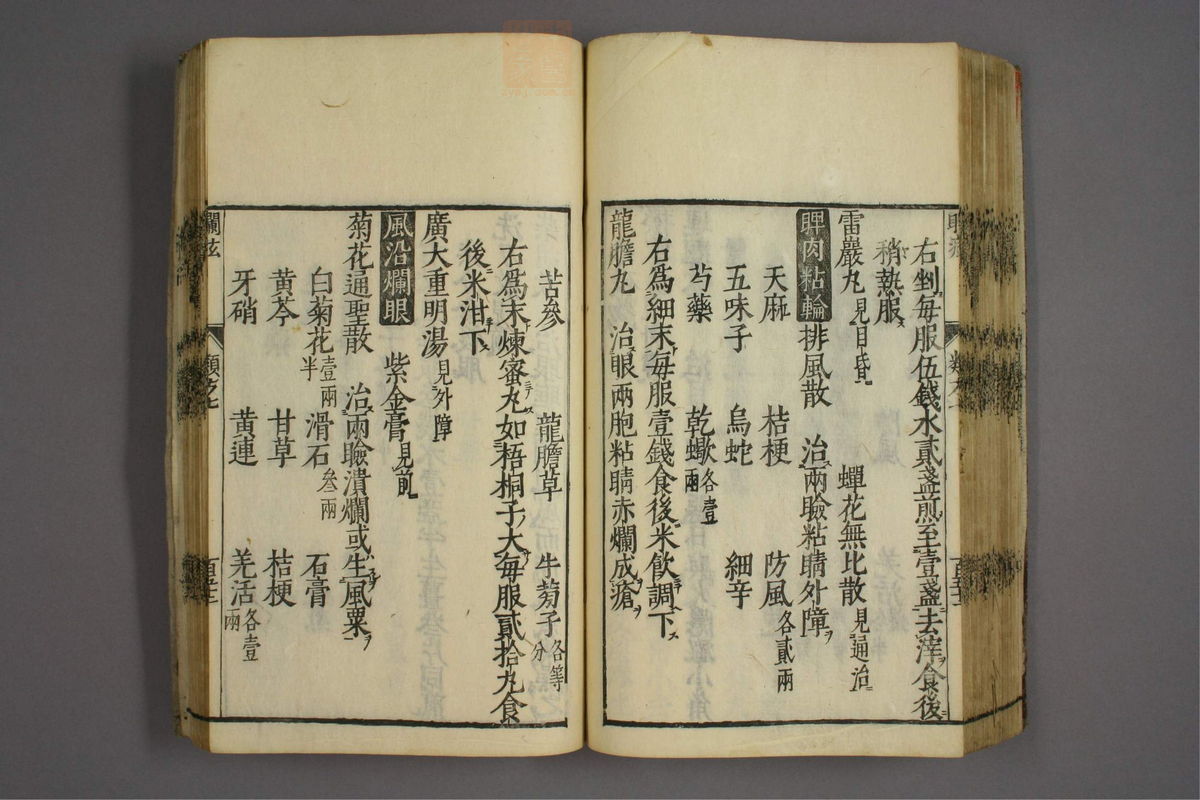 右剉每服伍錢水貳盞煎至壹盞去滓食後
稍熱服
雷巖丸見目昏 蟬花無比散見通治
睥肉粘輪 排風散 治兩瞼粘睛外障
天麻 桔梗 防風各貳兩
五味子 烏蛇 細辛
芍藥 乾蠍各壹兩
右爲細末每服壹錢食後米飮調下
龍膽丸 治眼兩胞粘睛赤爛成瘡
苦參 龍膽草 牛蒡子各等分
右爲末煉蜜丸如梧桐子大每服貳拾丸食
後米泔下
廣大重明湯見外障
風沿爛眼 紫金膏見前
菊花通聖散 治兩瞼潰爛或生風粟
白菊花壹兩半 滑石叁兩 石膏
黄芩 甘草 桔梗
牙硝 黄連 羌活各壹兩
爛弦